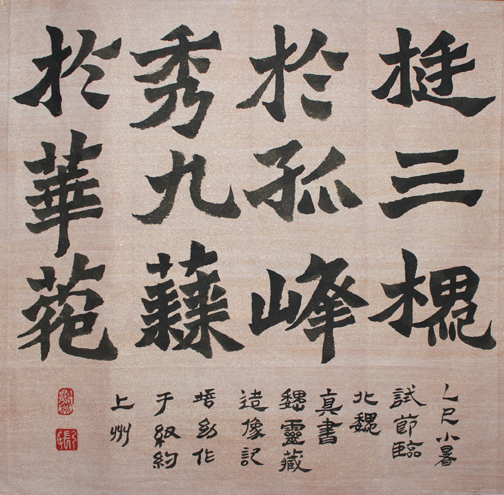 挺三槐
於孤峰
秀九蕀
於華菀
小暑
試節臨
北魏
真書
魏靈藏
造像記
作
于紐約
上州